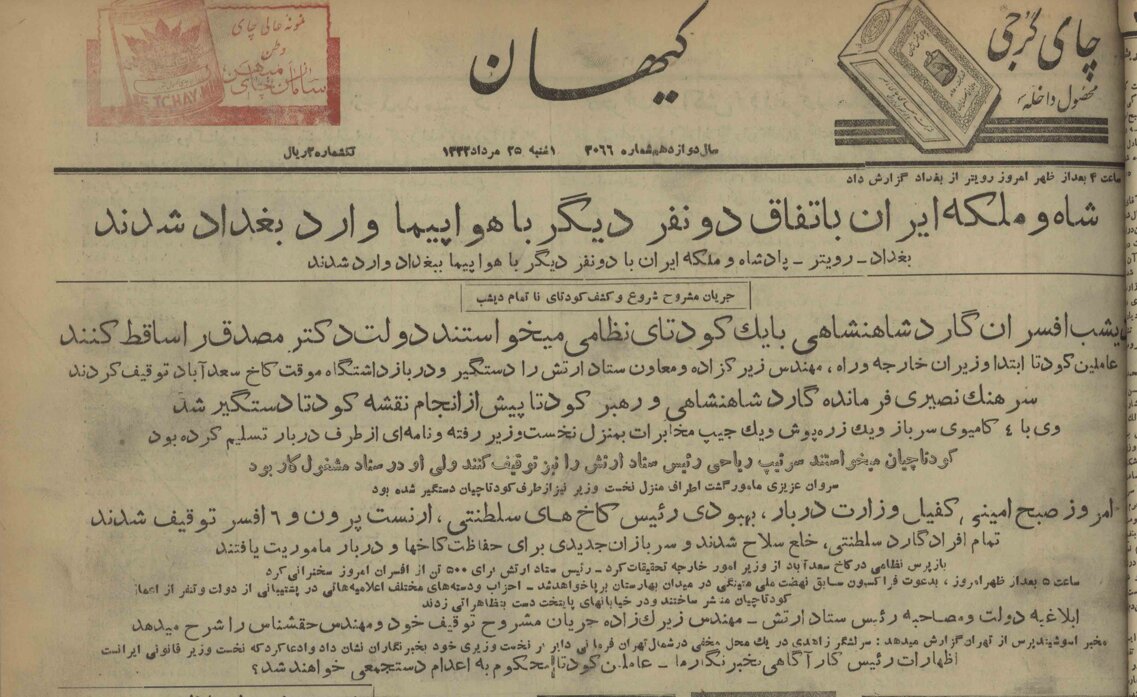 نمونه عالی چای
وطن
سامان چای میهن
کیهان
چای گرجی
محصول داخله
سال دوازدهم شماره ۳۰۶۶ ۱ شنبه ۲۵ مرداد ۱۳۳۲ تکشماره ۲ ریال
ساعت ۴ بعد از ظهر امروز رویتر از بغداد گزارش داد
شاه و ملکه ایران باتفاق دو نفر دیگر با هواپیما وارد بغداد شدند
بغداد ـ رویتر ـ پادشاه و ملکه ایران با دو نفر دیگر با هواپیما ببغداد وارد شدند
جریان مشروح شروع و کشف کودتای نا تمام دیشب
دیشب افسران گارد شاهنشاهی با یك کودتای نظامی میخواستند دولت دکتر مصدق را ساقط کنند
عاملین کودتا ابتدا وزیران خارجه و راه ، مهندس زیرکزاده و معاون ستاد ارتش را دستگیر و در بازداشتگاه موقت کاخ سعد آباد توقیف کردند
سرهنك نصیری فرمانده گارد شاهنشاهی و رهبر کودتا پیش از انجام نقشه کودتا دستگیر شد
وی با ٤ کامیون سرباز و یك زره پوش و یك جیپ مخابرات بمنزل نخست وزیر رفته و نامه ای از طرف دربار تسلیم کرده بود
کودتاچیان میخواستند سرتیپ ریاحی رئیس ستاد ارتش را نیز توقیف کنند ولی او در ستاد مشغول کار بود
سروان عزیزی مامور گشت اطراف منزل نخست وزیر نیز از طرف کودتاچیان دستگیر شده بود
امروز صبح امینی کفیل وزارت دربار ، بهبودی رئیس کاخ های سلطنتی ، ارنست پرون و ٦ افسر توقیف شدند
تمام افراد گارد سلطنتی، خلع سلاح شدند و سربازان جدیدی برای حفاظت کاخها و دربار ماموریت یافتند
بازپرس نظامی در کاخ سعد آباد از وزیر امور خارجه تحقیقات کرد ـ رئیس ستاد ارتش برای ۵۰۰ تن از افسران امروز سخنرانی کرد
ساعت ۵ بعد از ظهر امروز ، بدعوت فراکسیون سابق نهضت ملی متینگی در میدان بهارستان برپا خواهد شد ـ احزاب و دسته های مختلف اعلامیه هائی در پشتیبانی از دولت و تنفر از اعمال
کودتاچیان منتشر ساختند و در خیابانهای پایتخت دست بتظاهراتی زدند
ابلاغیه دولت و مصاحبه رئیس ستاد ارتش ـ مهندس زیرك زاده جریان مشروح توقیف خود و مهندس حقشناس را شرح میدهد
مخبر اسوشیتد پرس از تهران گزارش میدهد : سرلشگر زاهدی در یك محل مخفی در شمال تهران فرمانی دایر بر نخست وزیری خود بخبر نگاران نشان داد و ادعا کرد که نخست وزیر قانونی ایرانست
اظهارات رئیس کار آگاهی بخبر نگار ما ـ عاملین کودتا محکوم به اعدام دستجمعی خواهند شد؟